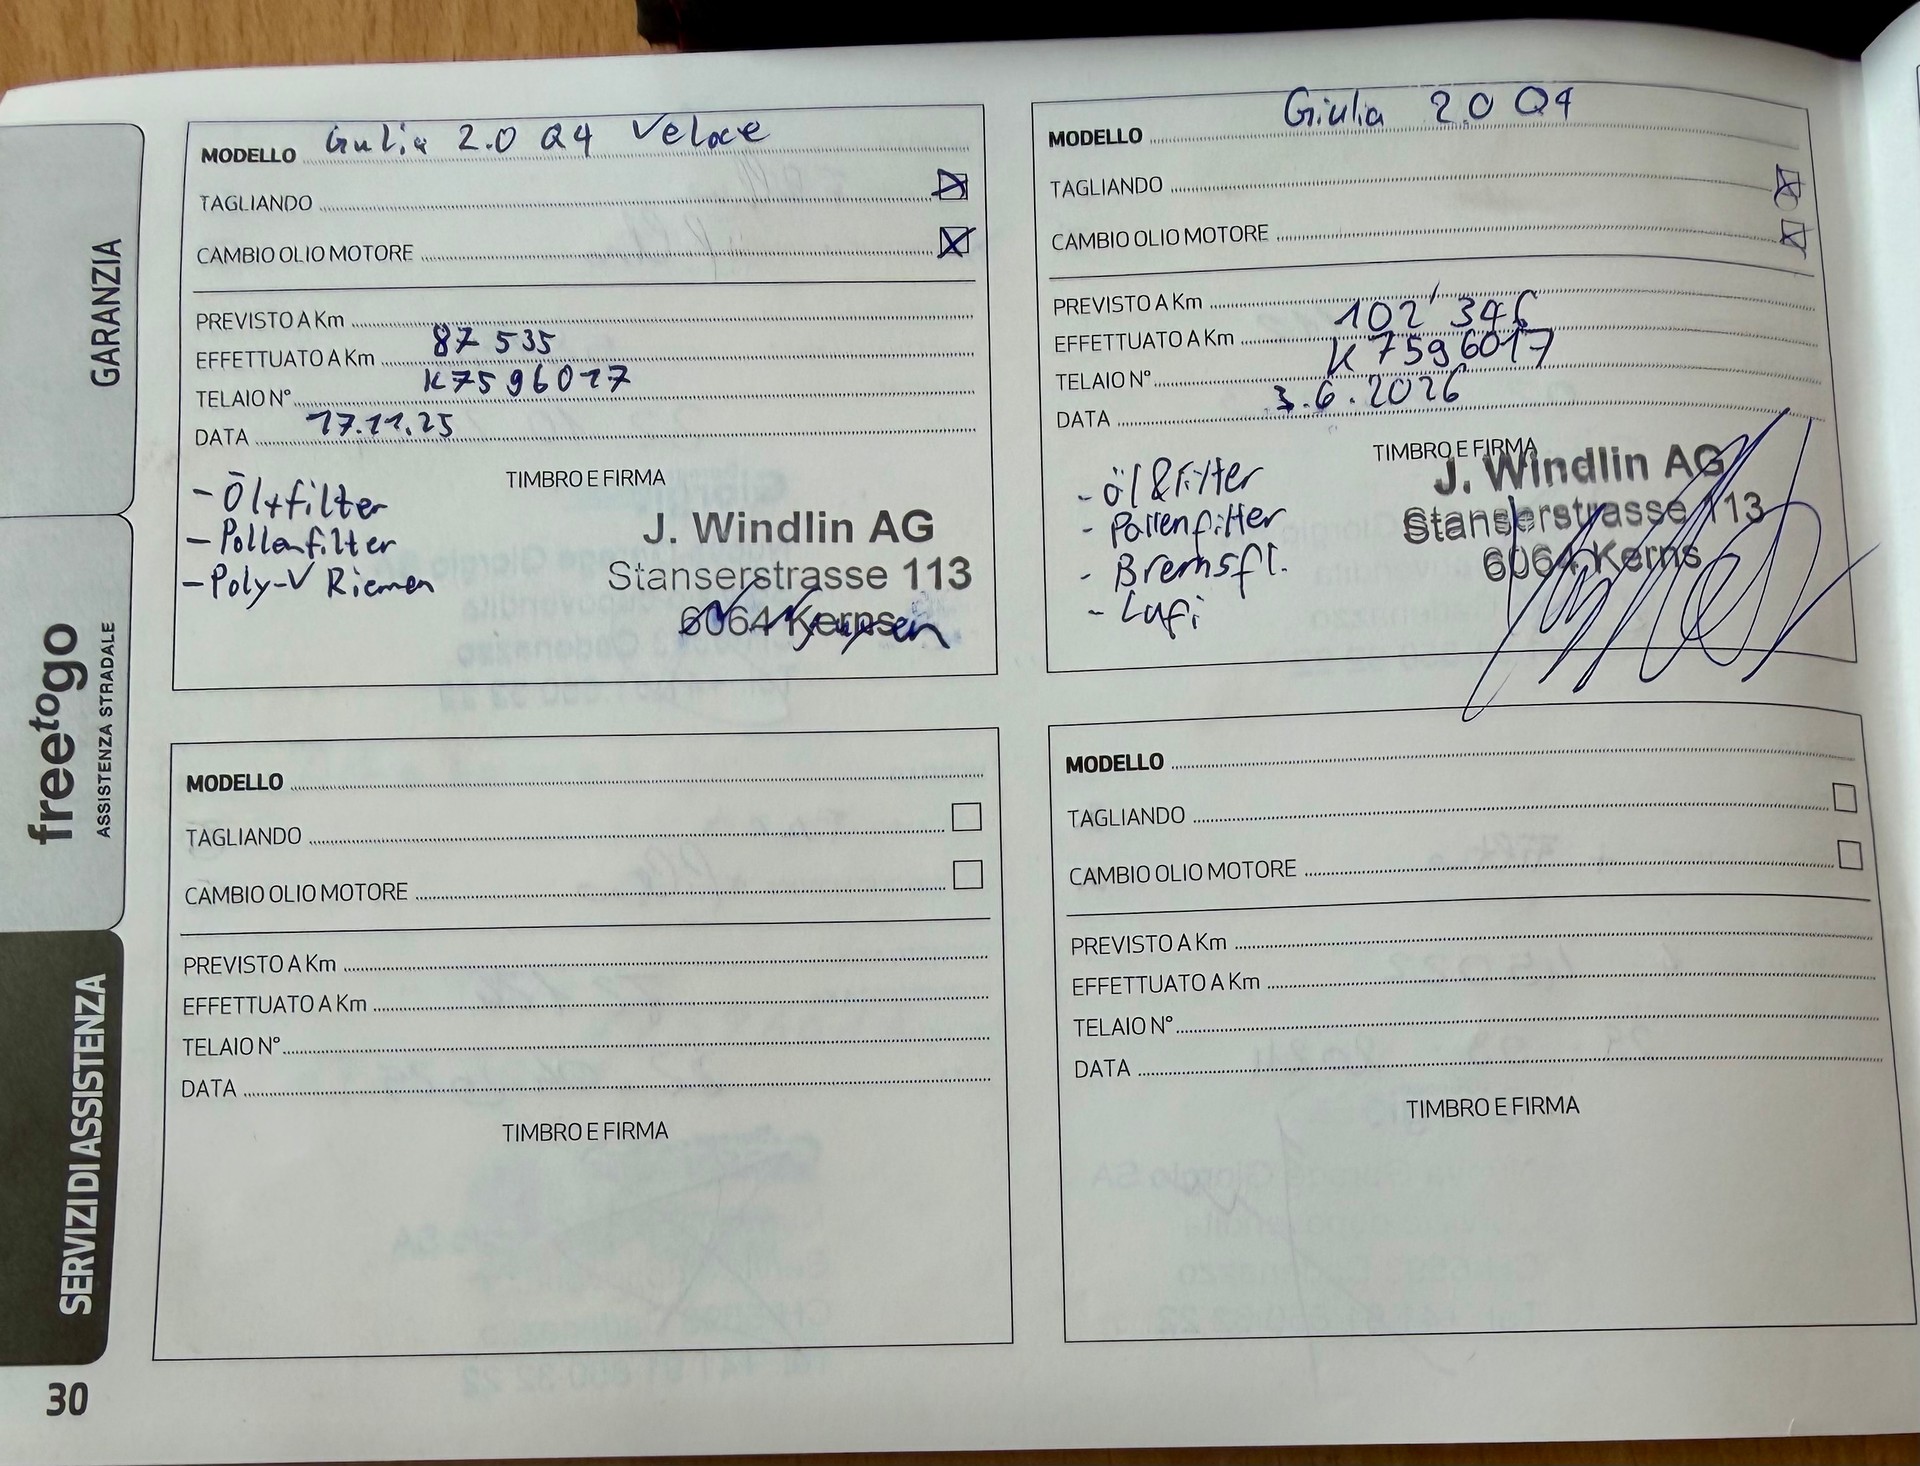 GARANZIA
freetogo
ASSISTENZA STRADALE
SERVIZI DI ASSISTENZA
30
MODELLO Giulia 2.0 Q4 Veloce
TAGLIANDO
CAMBIO OLIO MOTORE
PREVISTO A Km
EFFETTUATO A Km 87 535
TELAIO N° K7596017
DATA 17.11.25
TIMBRO E FIRMA
- Öl+filter
- Pollenfilter
- Poly-V Riemen
J. Windlin AG
Stanserstrasse 113
6064 Kerns
MODELLO Giulia 2.0 Q4
TAGLIANDO
CAMBIO OLIO MOTORE
PREVISTO A Km
EFFETTUATO A Km 102'346
TELAIO N° K7596017
DATA 3.6.2026
TIMBRO E FIRMA
- Öl & Filter
- Pollenfilter
- Bremsfl.
- Lufi
J. Windlin AG
Stanserstrasse 113
6064 Kerns
MODELLO
TAGLIANDO
CAMBIO OLIO MOTORE
PREVISTO A Km
EFFETTUATO A Km
TELAIO N°
DATA
TIMBRO E FIRMA
MODELLO
TAGLIANDO
CAMBIO OLIO MOTORE
PREVISTO A Km
EFFETTUATO A Km
TELAIO N°
DATA
TIMBRO E FIRMA